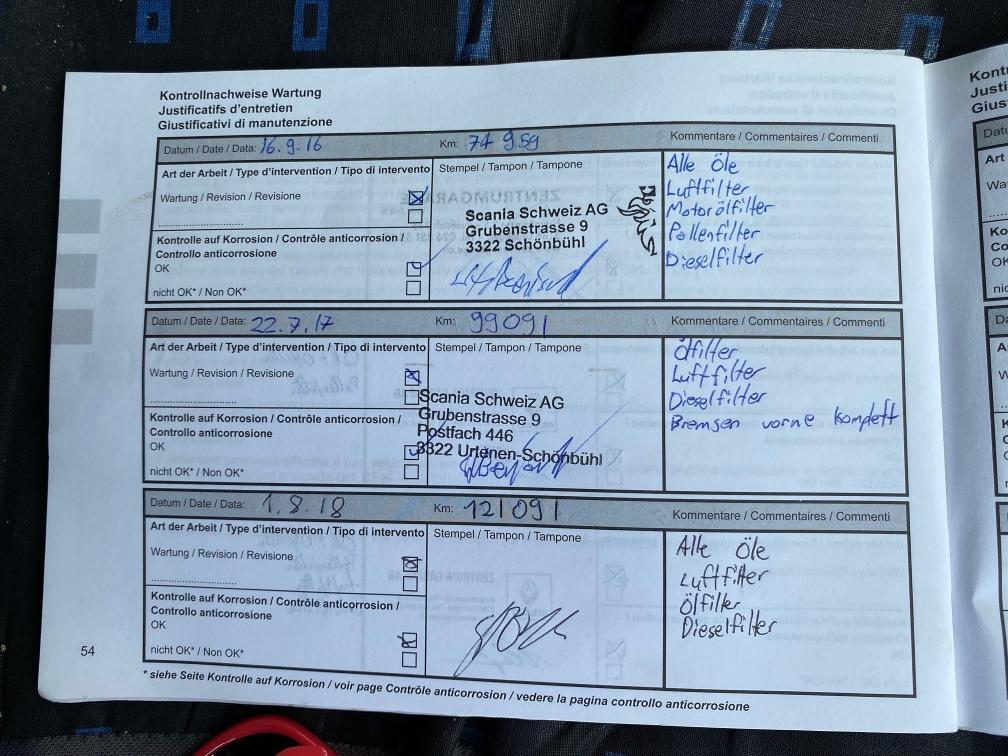 Kontrollnachweise Wartung
Justificatifs d'entretien
Giustificativi di manutenzione
Datum / Date / Data: 16.9.16 Km: 74 959 Kommentare / Commentaires / Commenti
Art der Arbeit / Type d'intervention / Tipo di intervento Stempel / Tampon / Tampone
Wartung / Revision / Revisione
Kontrolle auf Korrosion / Contrôle anticorrosion /
Controllo anticorrosione
OK
nicht OK* / Non OK*
Scania Schweiz AG
Grubenstrasse 9
3322 Schönbühl
Alle Öle
Luftfilter
Motorölfilter
Pollenfilter
Dieselfilter
Datum / Date / Data: 22.7.17 Km: 99091 Kommentare / Commentaires / Commenti
Art der Arbeit / Type d'intervention / Tipo di intervento Stempel / Tampon / Tampone
Wartung / Revision / Revisione
Kontrolle auf Korrosion / Contrôle anticorrosion /
Controllo anticorrosione
OK
nicht OK* / Non OK*
Scania Schweiz AG
Grubenstrasse 9
Postfach 446
3322 Urtenen-Schönbühl
Ölfilter
Luftfilter
Dieselfilter
Bremsen vorne komplett
Datum / Date / Data: 1.8.18 Km: 121091 Kommentare / Commentaires / Commenti
Art der Arbeit / Type d'intervention / Tipo di intervento Stempel / Tampon / Tampone
Wartung / Revision / Revisione
Kontrolle auf Korrosion / Contrôle anticorrosion /
Controllo anticorrosione
OK
nicht OK* / Non OK*
Alle Öle
Luftfilter
Ölfilter
Dieselfilter
54
* siehe Seite Kontrolle auf Korrosion / voir page Contrôle anticorrosion / vedere la pagina controllo anticorrosione